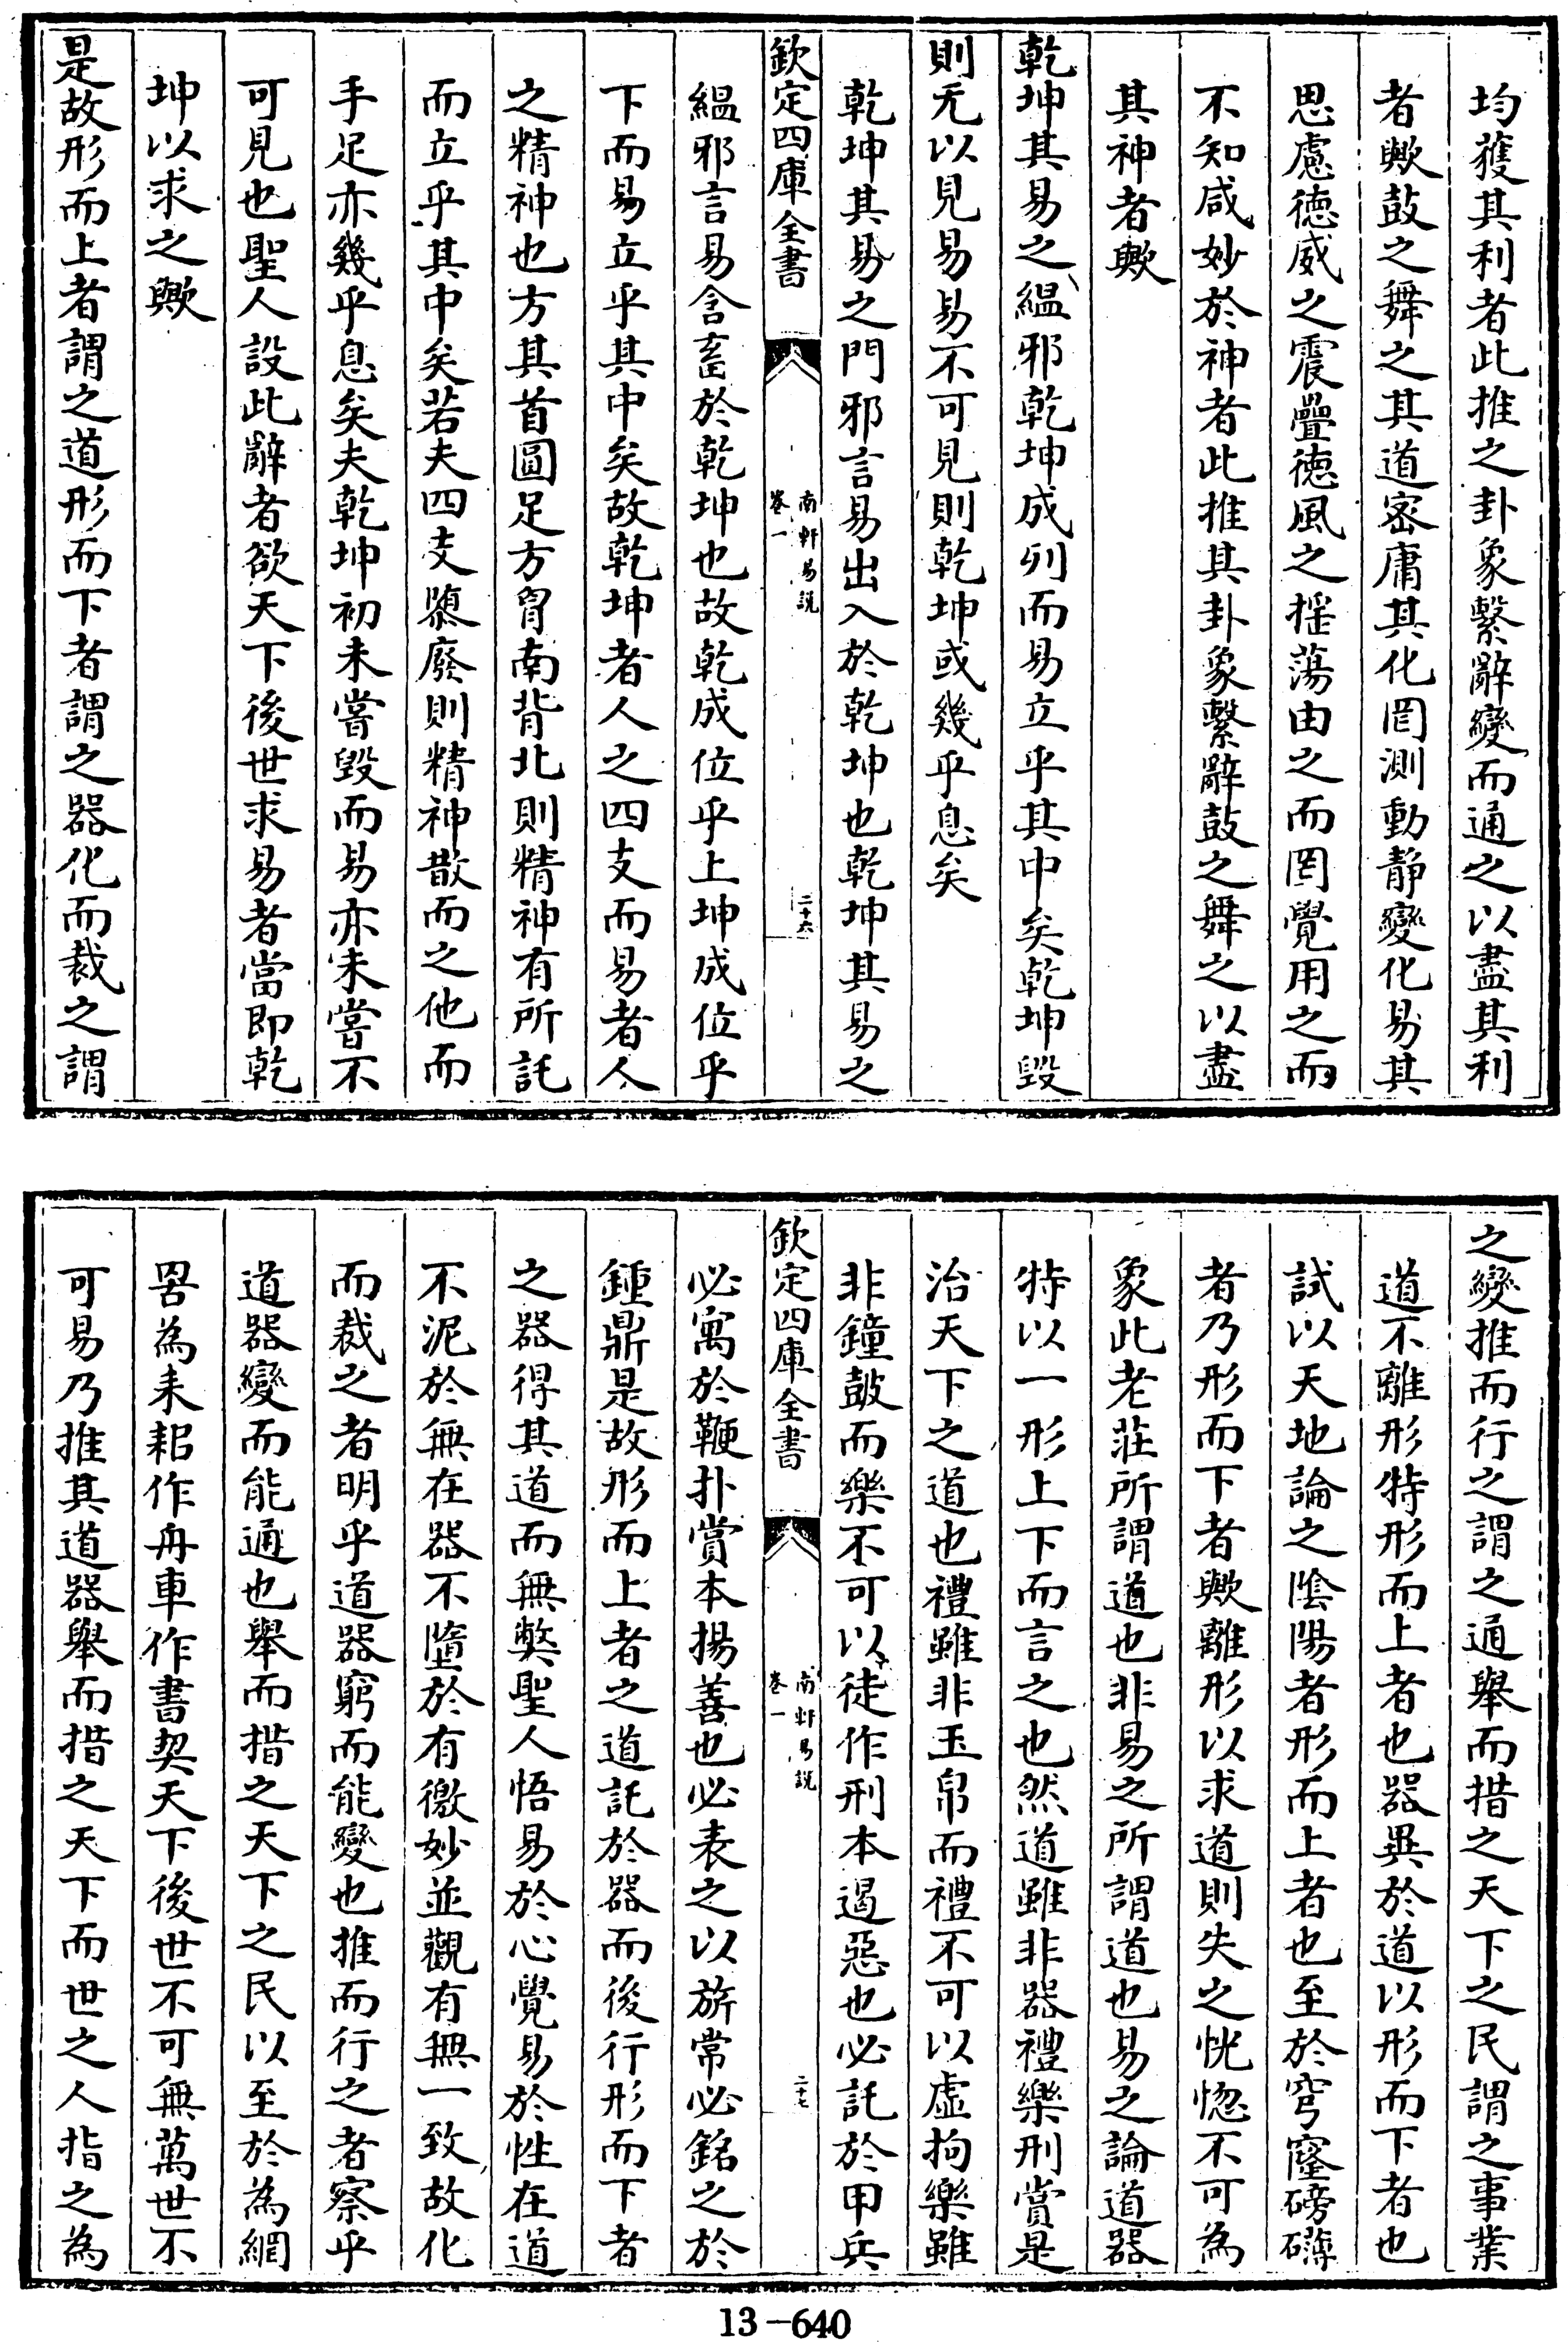 均獲其利者此推之卦象繫辭變而通之以盡其利
者歟鼓之舞之其道密庸其化罔測動静變化易其
思慮徳威之震疊徳風之揺蕩由之而罔覺用之而
不知咸妙於神者此推其卦象繫辭鼓之舞之以盡
其神者歟
乾坤其易之緼邪乾坤成列而易立乎其中矣乾坤毁
則无以見易易不可見則乾坤或幾乎息矣
乾坤其易之門邪言易出入於乾坤也乾坤其易之
欽定四庫全書
南軒易說
卷一
二十六
緼邪言易含畜於乾坤也故乾成位乎上坤成位乎
下而易立乎其中矣故乾坤者人之四支而易者人
之精神也方其首圓足方胷南背北則精神有所託
而立乎其中矣若夫四支隳廢則精神散而之他而
手足亦幾乎息矣夫乾坤初未嘗毁而易亦未嘗不
可見也聖人設此辭者欲天下後世求易者當即乾
坤以求之歟
是故形而上者謂之道形而下者謂之器化而裁之謂
之變推而行之謂之通舉而措之天下之民謂之事業
道不離形特形而上者也器異於道以形而下者也
試以天地論之隂陽者形而上者也至於穹窿磅礴
者乃形而下者歟離形以求道則失之恍惚不可為
象此老莊所謂道也非易之所謂道也易之論道器
特以一形上下而言之也然道雖非器禮樂刑賞是
治天下之道也禮雖非玉帛而禮不可以虚拘樂雖
非鐘鼓而樂不可以徒作刑本遏惡也必託於甲兵
欽定四庫全書
南軒易說
卷一
二十七
必寓於鞭扑賞本揚善也必表之以旂常必銘之於
鍾鼎是故形而上者之道託於器而後行形而下者
之器得其道而無弊聖人悟易於心覺易於性在道
不泥於無在器不墮於有徼妙並觀有無一致故化
而裁之者明乎道器窮而能變也推而行之者察乎
道器變而能通也舉而措之天下之民以至於為網
罟為耒耜作舟車作書契天下後世不可無萬世不
可易乃推其道器舉而措之天下而世之人指之為
13-640